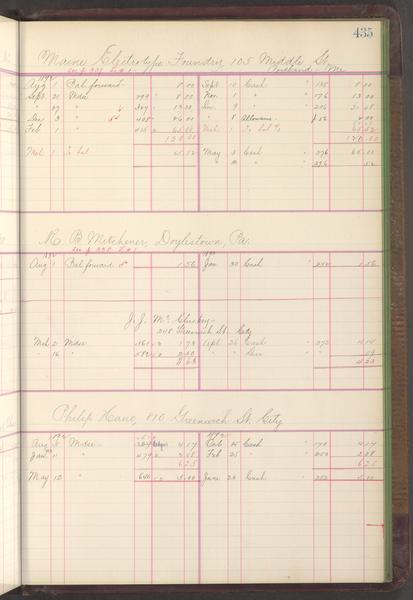 435
Maine Electrotype Foundry, 105 Middle St.
Portland Me
1892
Aug 1 Bal. forward 8 00 Sept. 10 Cash 135 8 00
Sept. 21 Mdse 299 8 00 Nov. 1 " 176 13 00
" 29 " 309 13 00 Dec. 9 "
Dec 3 " 408 46 00 " " Allowance
Feb 1 " 65 00 Mch. 1 To bal 65 52
Mch. 1 To bal 65 52 May 3 Cash 276 65 00
" " " 276 52
M. B. Mitchener, Doylestown, Pa.
1892
Aug 1 Bal. forward 1 56 Jan 30 Cash 1 56
J. J. McCluskey
248 Greenwich St. City
Mch 2 Mdse 561 1 73 Apl. 26 Cash 272 4 14
" 16 " 582 2 50 " " Disc 09
4 23 4 23
Philip Hano, 810 Greenwich St. City
1892
Aug 5 Mdse 4 17 Oct. 15 Cash 170 4 17
Jan 11 " 479 2 08 Feb 25 " 250 2 08
6 25 6 25
May 12 " 640 5 00 June 23 Cash 5 00